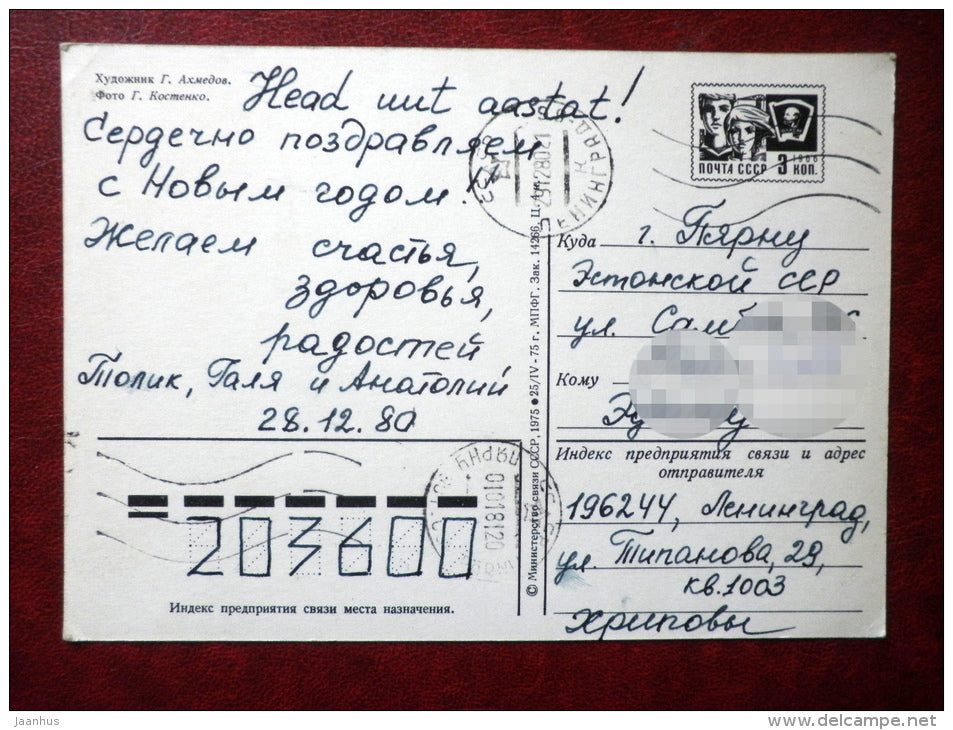 Художник Г. Ахмедов.
Фото Г. Костенко.
Head uut aastat!
Сердечно поздравляем
с Новым годом!
Желаем счастья,
здоровья,
радостей
Толик, Галя и Анатолий
28.12.80
203600
Индекс предприятия связи места назначения.
© Министерство связи СССР, 1975 ● 25/IV - 75 г. МПФГ. Зак. 14266. Ц. 4 к.
1966
ПОЧТА СССР 3 КОП.
ЛЕНИНГРАД
29128021
Куда г. Пярну
Эстонской ССР
ул.
Кому
Индекс предприятия связи и адрес
отправителя
196244, Ленинград,
ул. Типанова, 29,
кв. 1003
Хриповы
ПЯРНУ
01018120
jaanhus
www.delcampe.net